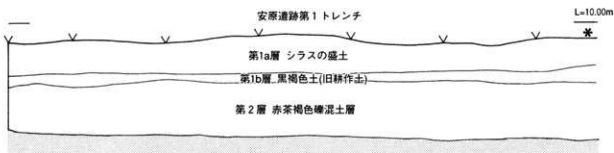 安原遺跡第1トレンチ
L=10.00m
*
第1a層 シラスの盛土
第1b層 黒褐色土(旧耕作土)
第2層 赤茶褐色礫混土層